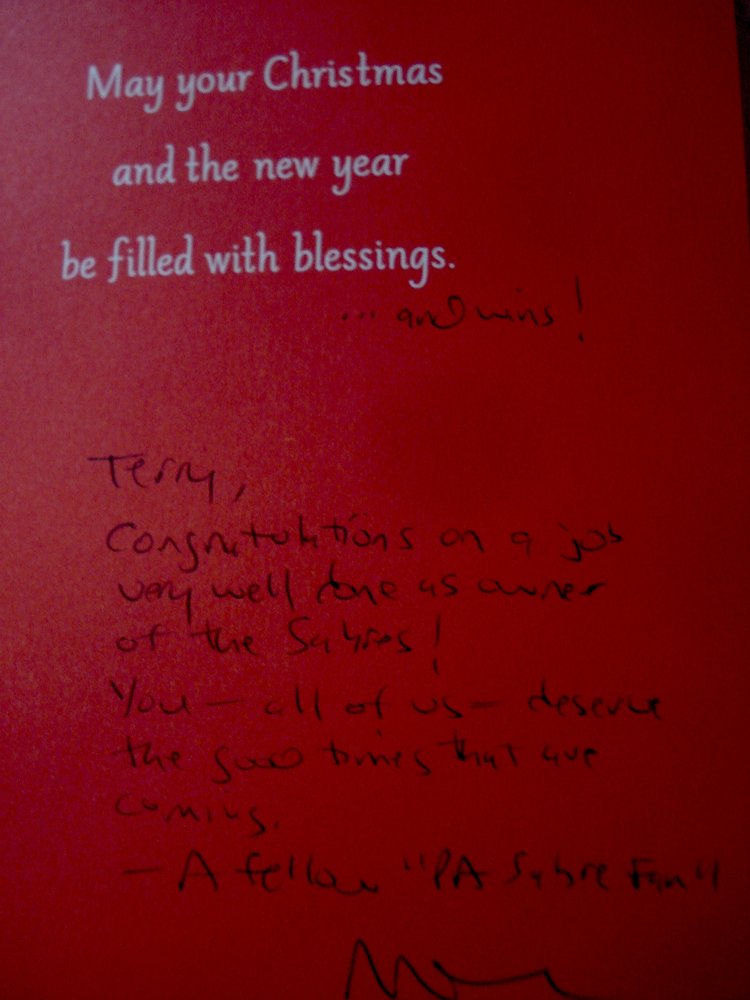 May your Christmas
and the new year
be filled with blessings.
... and wins!
Terry,
Congratulations on a job
very well done as owner
of the Sabres!
You — all of us — deserve
the good times that are
coming.
— A fellow "PA Sabre Fan"